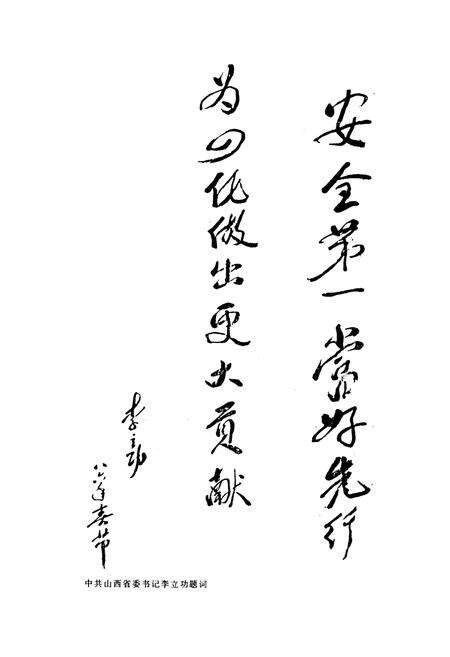 安全第一当好先行
为四化做出更大贡献
李立功
八六年春节
中共山西省委书记李立功题词